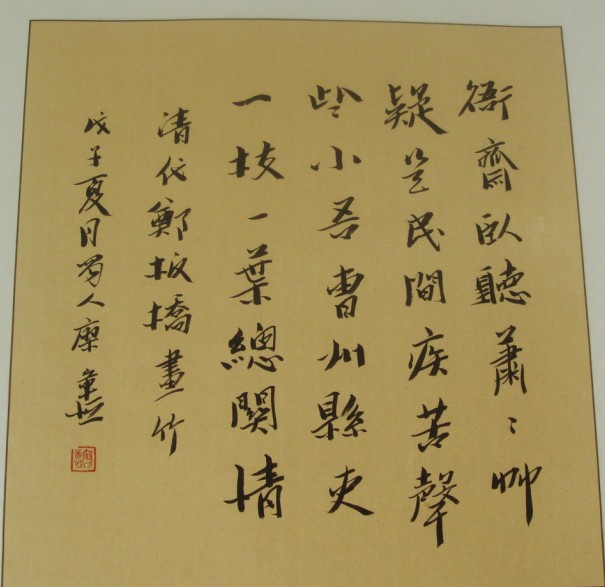 衙齋臥聽蕭〻艸
疑是民間疾苦聲
些小吾曹州縣吏
一枝一葉總關情
清代鄭板橋畫竹
戊子夏月蜀人廖